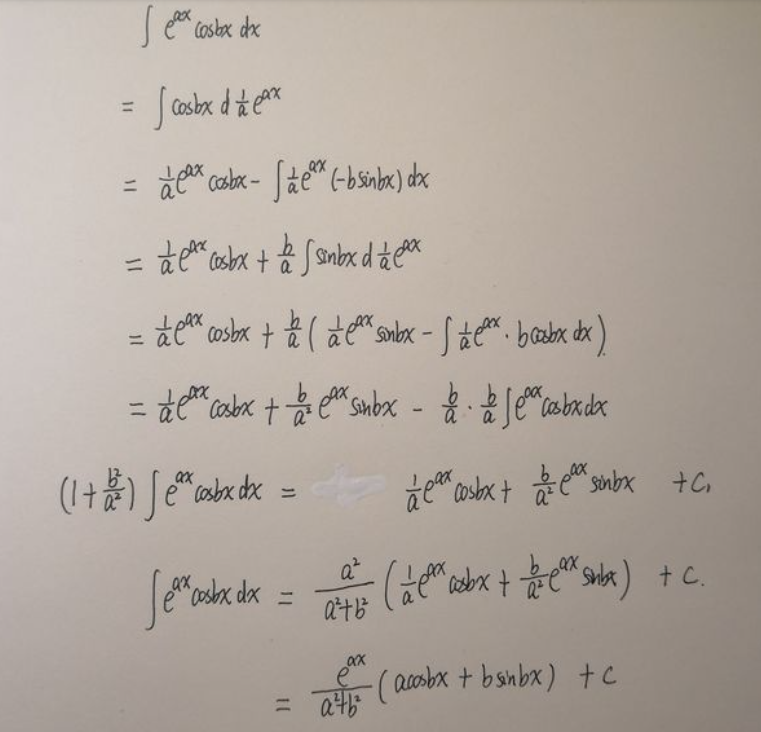 ∫ e^{ax} cosbx dx
= ∫ cosbx d 1/a e^{ax}
= 1/a e^{ax} cosbx - ∫ 1/a e^{ax} (-b sinbx) dx
= 1/a e^{ax} cosbx + b/a ∫ sinbx d 1/a e^{ax}
= 1/a e^{ax} cosbx + b/a ( 1/a e^{ax} sinbx - ∫ 1/a e^{ax} · b cosbx dx )
= 1/a e^{ax} cosbx + b/a² e^{ax} sinbx - b/a · b/a ∫ e^{ax} cosbx dx
(1 + b²/a²) ∫ e^{ax} cosbx dx = 1/a e^{ax} cosbx + b/a² e^{ax} sinbx + C₁
∫ e^{ax} cosbx dx = a²/(a²+b²) ( 1/a e^{ax} cosbx + b/a² e^{ax} sinbx ) + C.
= e^{ax}/(a²+b²) ( acosbx + b sinbx ) + C